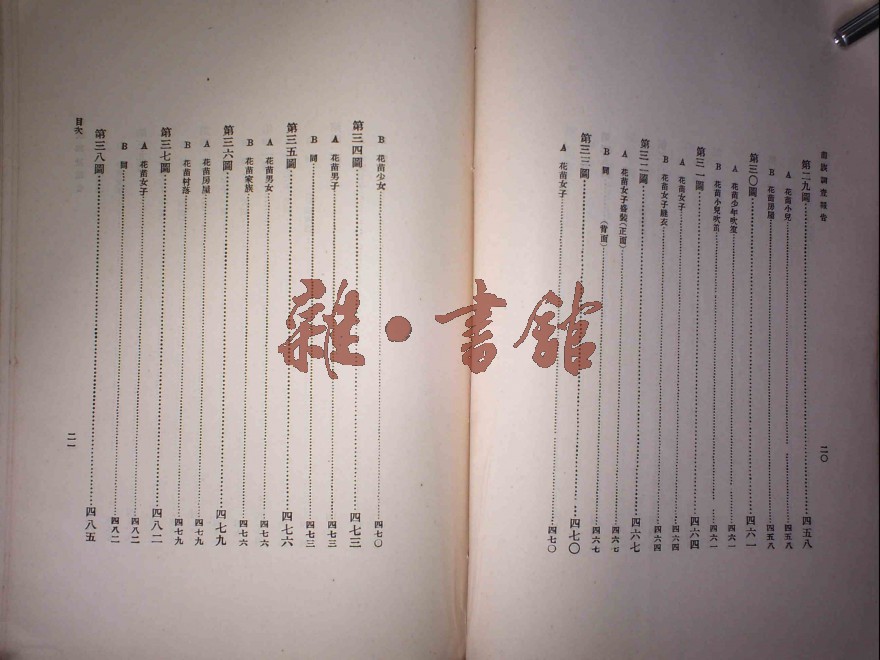 苗族調查報告
第二九圖……四五八
A 花苗小兒……四五八
B 花苗房屋……四五八
第三〇圖……四六一
A 花苗少年吹笙……四六一
B 花苗小兒吹笛……四六一
第三一圖……四六四
A 花苗女子……四六四
B 花苗女子縫衣……四六四
第三二圖……四六七
A 花苗女子春裝(正面)……四六七
B 同 (背面)……四六七
第三三圖……四七〇
A 花苗女子……四七〇
二〇
B 花苗少女……四七〇
第三四圖……四七三
A 花苗男子……四七三
B 同……四七三
第三五圖……四七六
A 花苗男女……四七六
B 花苗家族……四七六
第三六圖……四七九
A 花苗房屋……四七九
B 花苗村落……四七九
第三七圖……四八二
A 花苗女子……四八二
B 同……四八二
第三八圖……四八五
目次
二一
雜·書館